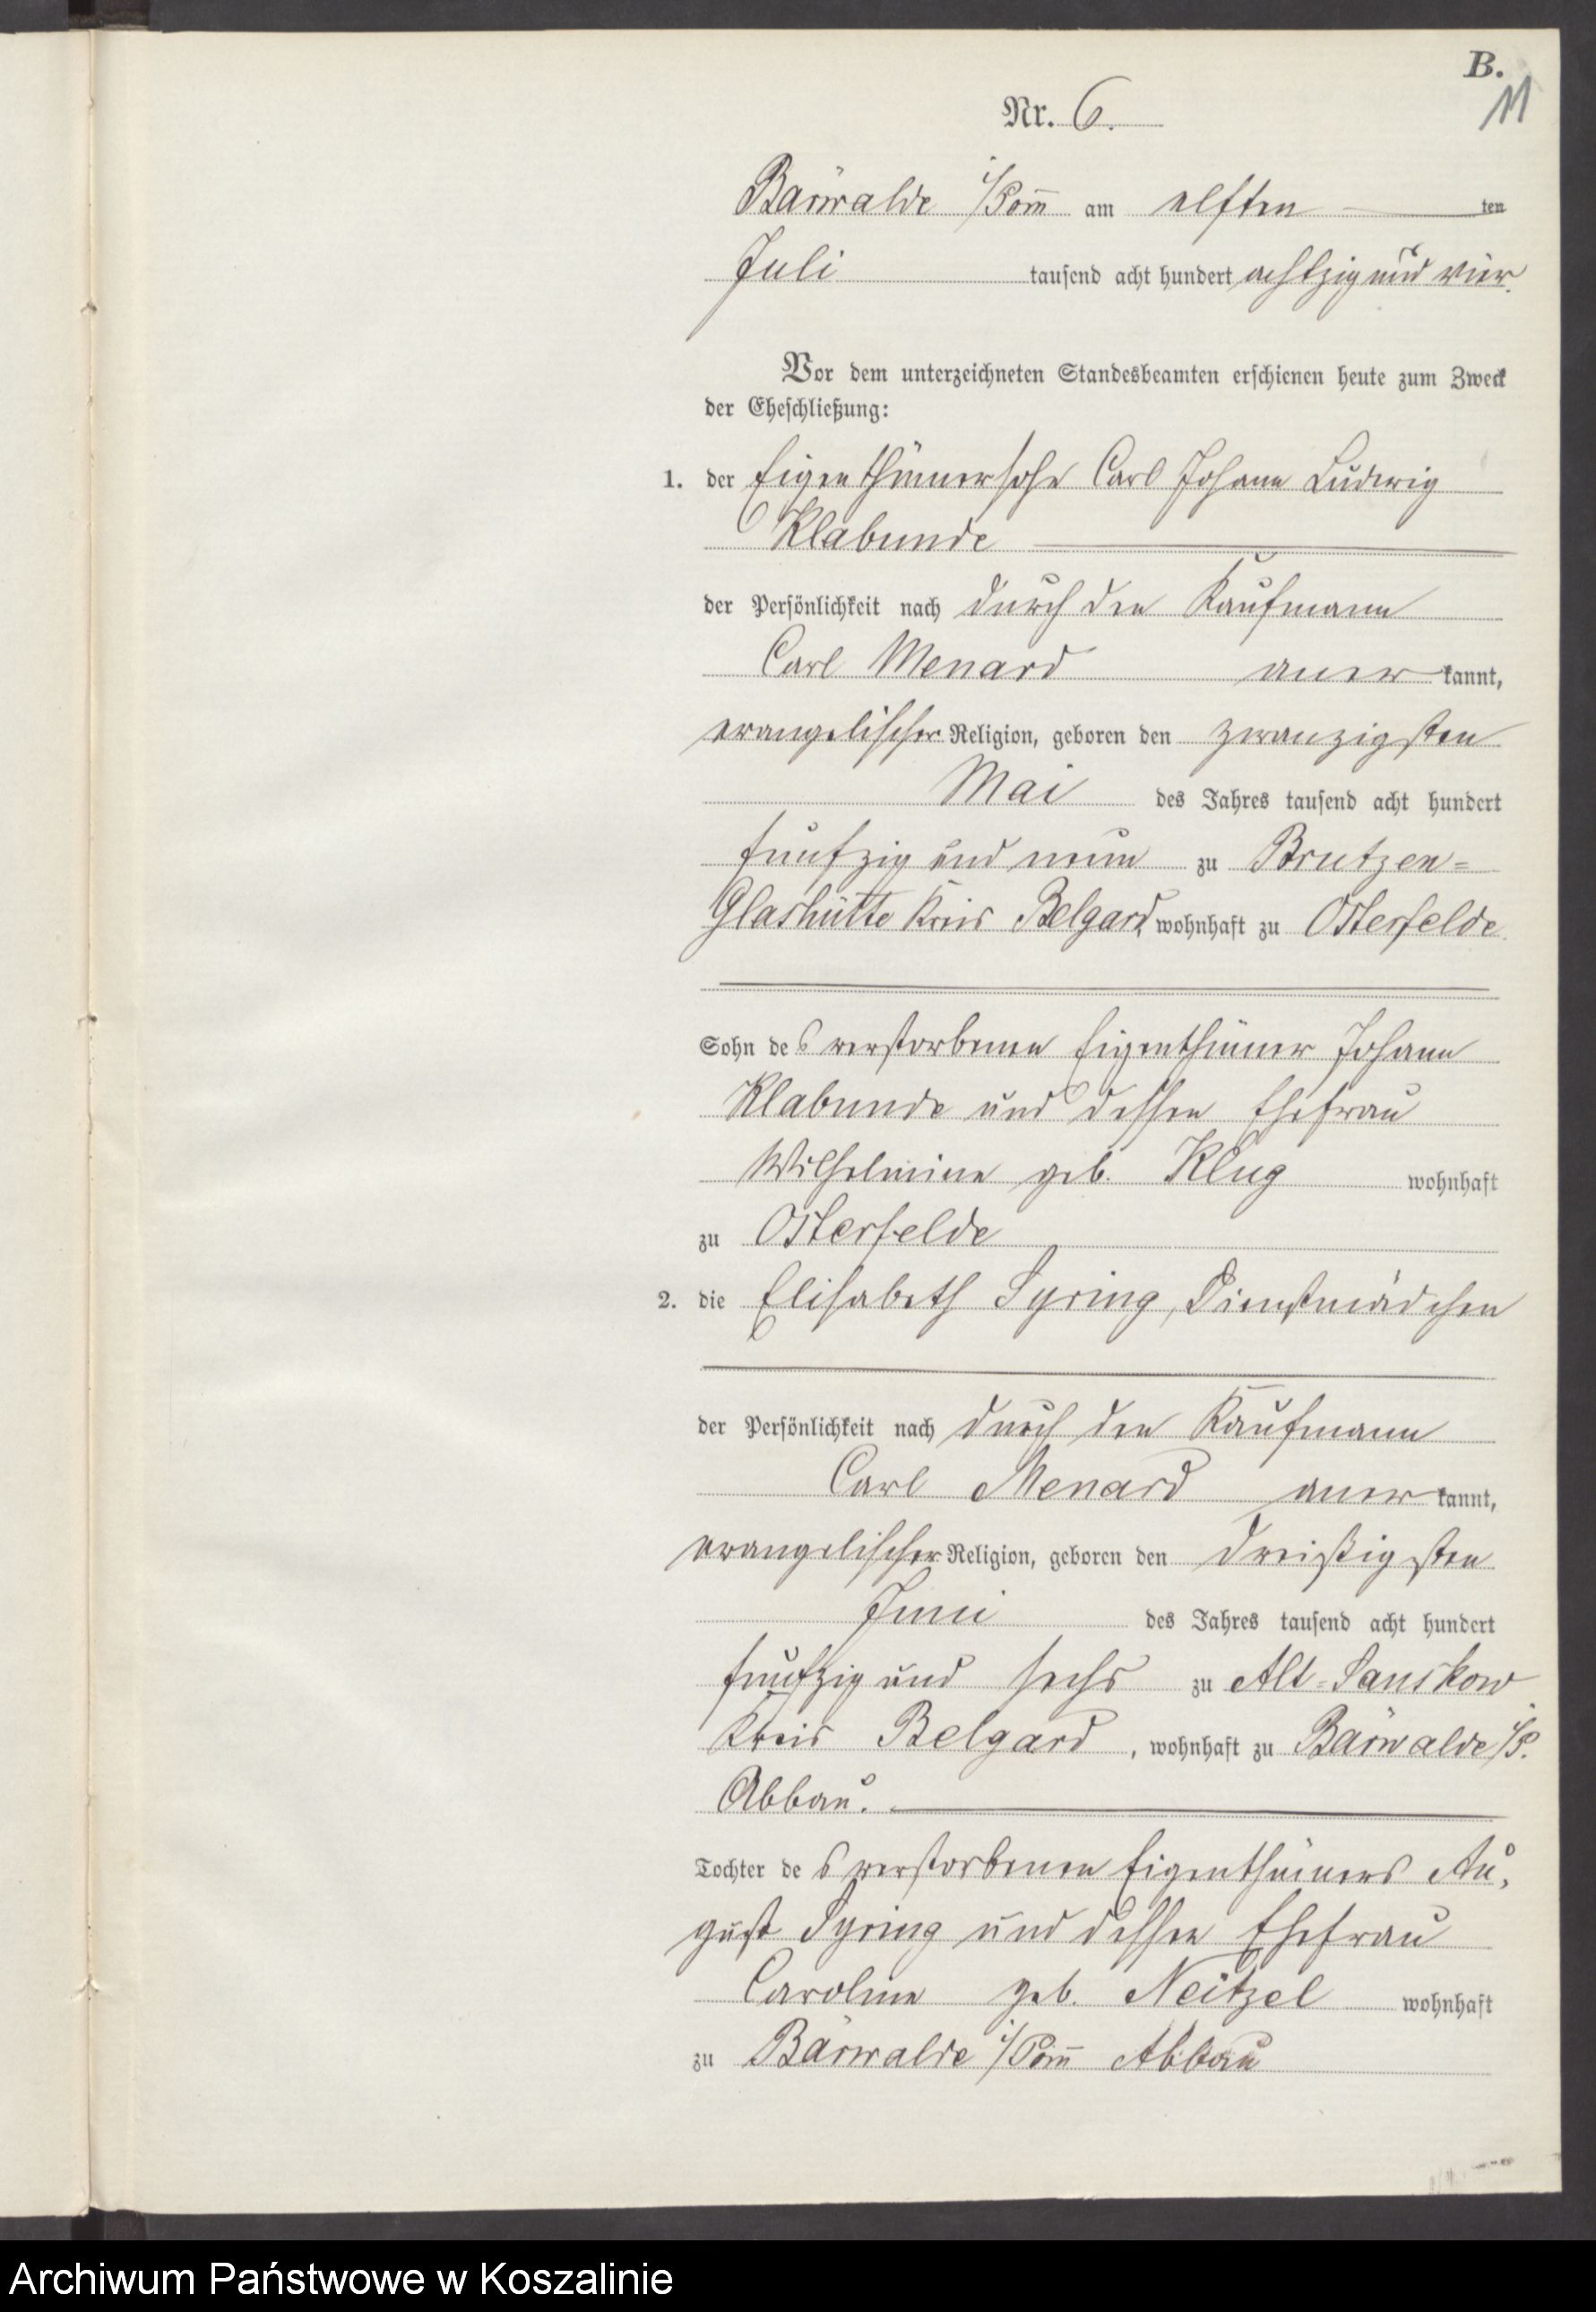 B.
11
Nr. 6.
Bärwalde i/Pom̄ am elften ten
Juli tausend acht hundert achtzig und vier.
Vor dem unterzeichneten Standesbeamten erschienen heute zum Zweck
der Eheschließung:
1. der Eigenthümersohn Carl Johann Ludwig
Klabunde
der Persönlichkeit nach durch den Kaufmann
Carl Menard aner kannt,
evangelischer Religion, geboren den zwanzigsten
Mai des Jahres tausend acht hundert
funfzig und neun zu Brutzen=
Glashütte Kreis Belgard, wohnhaft zu Osterfelde.
Sohn des verstorbenen Eigenthümer Johann
Klabunde und dessen Ehefrau
Wilhelmine geb. Klug wohnhaft
zu Osterfelde
2. die Elisabeth Syring, Dienstmädchen
der Persönlichkeit nach durch den Kaufmann
Carl Menard aner kannt,
evangelischer Religion, geboren den dreißigsten
Juni des Jahres tausend acht hundert
funfzig und sechs zu Alt=Sanskow
Kreis Belgard, wohnhaft zu Bärwalde i/P.
Abbau.
Tochter des verstorbenen Eigenthümers Au,
gust Syring und dessen Ehefrau
Caroline geb. Neitzel wohnhaft
zu Bärwalde i/Pom̄ Abbau
Archiwum Państwowe w Koszalinie